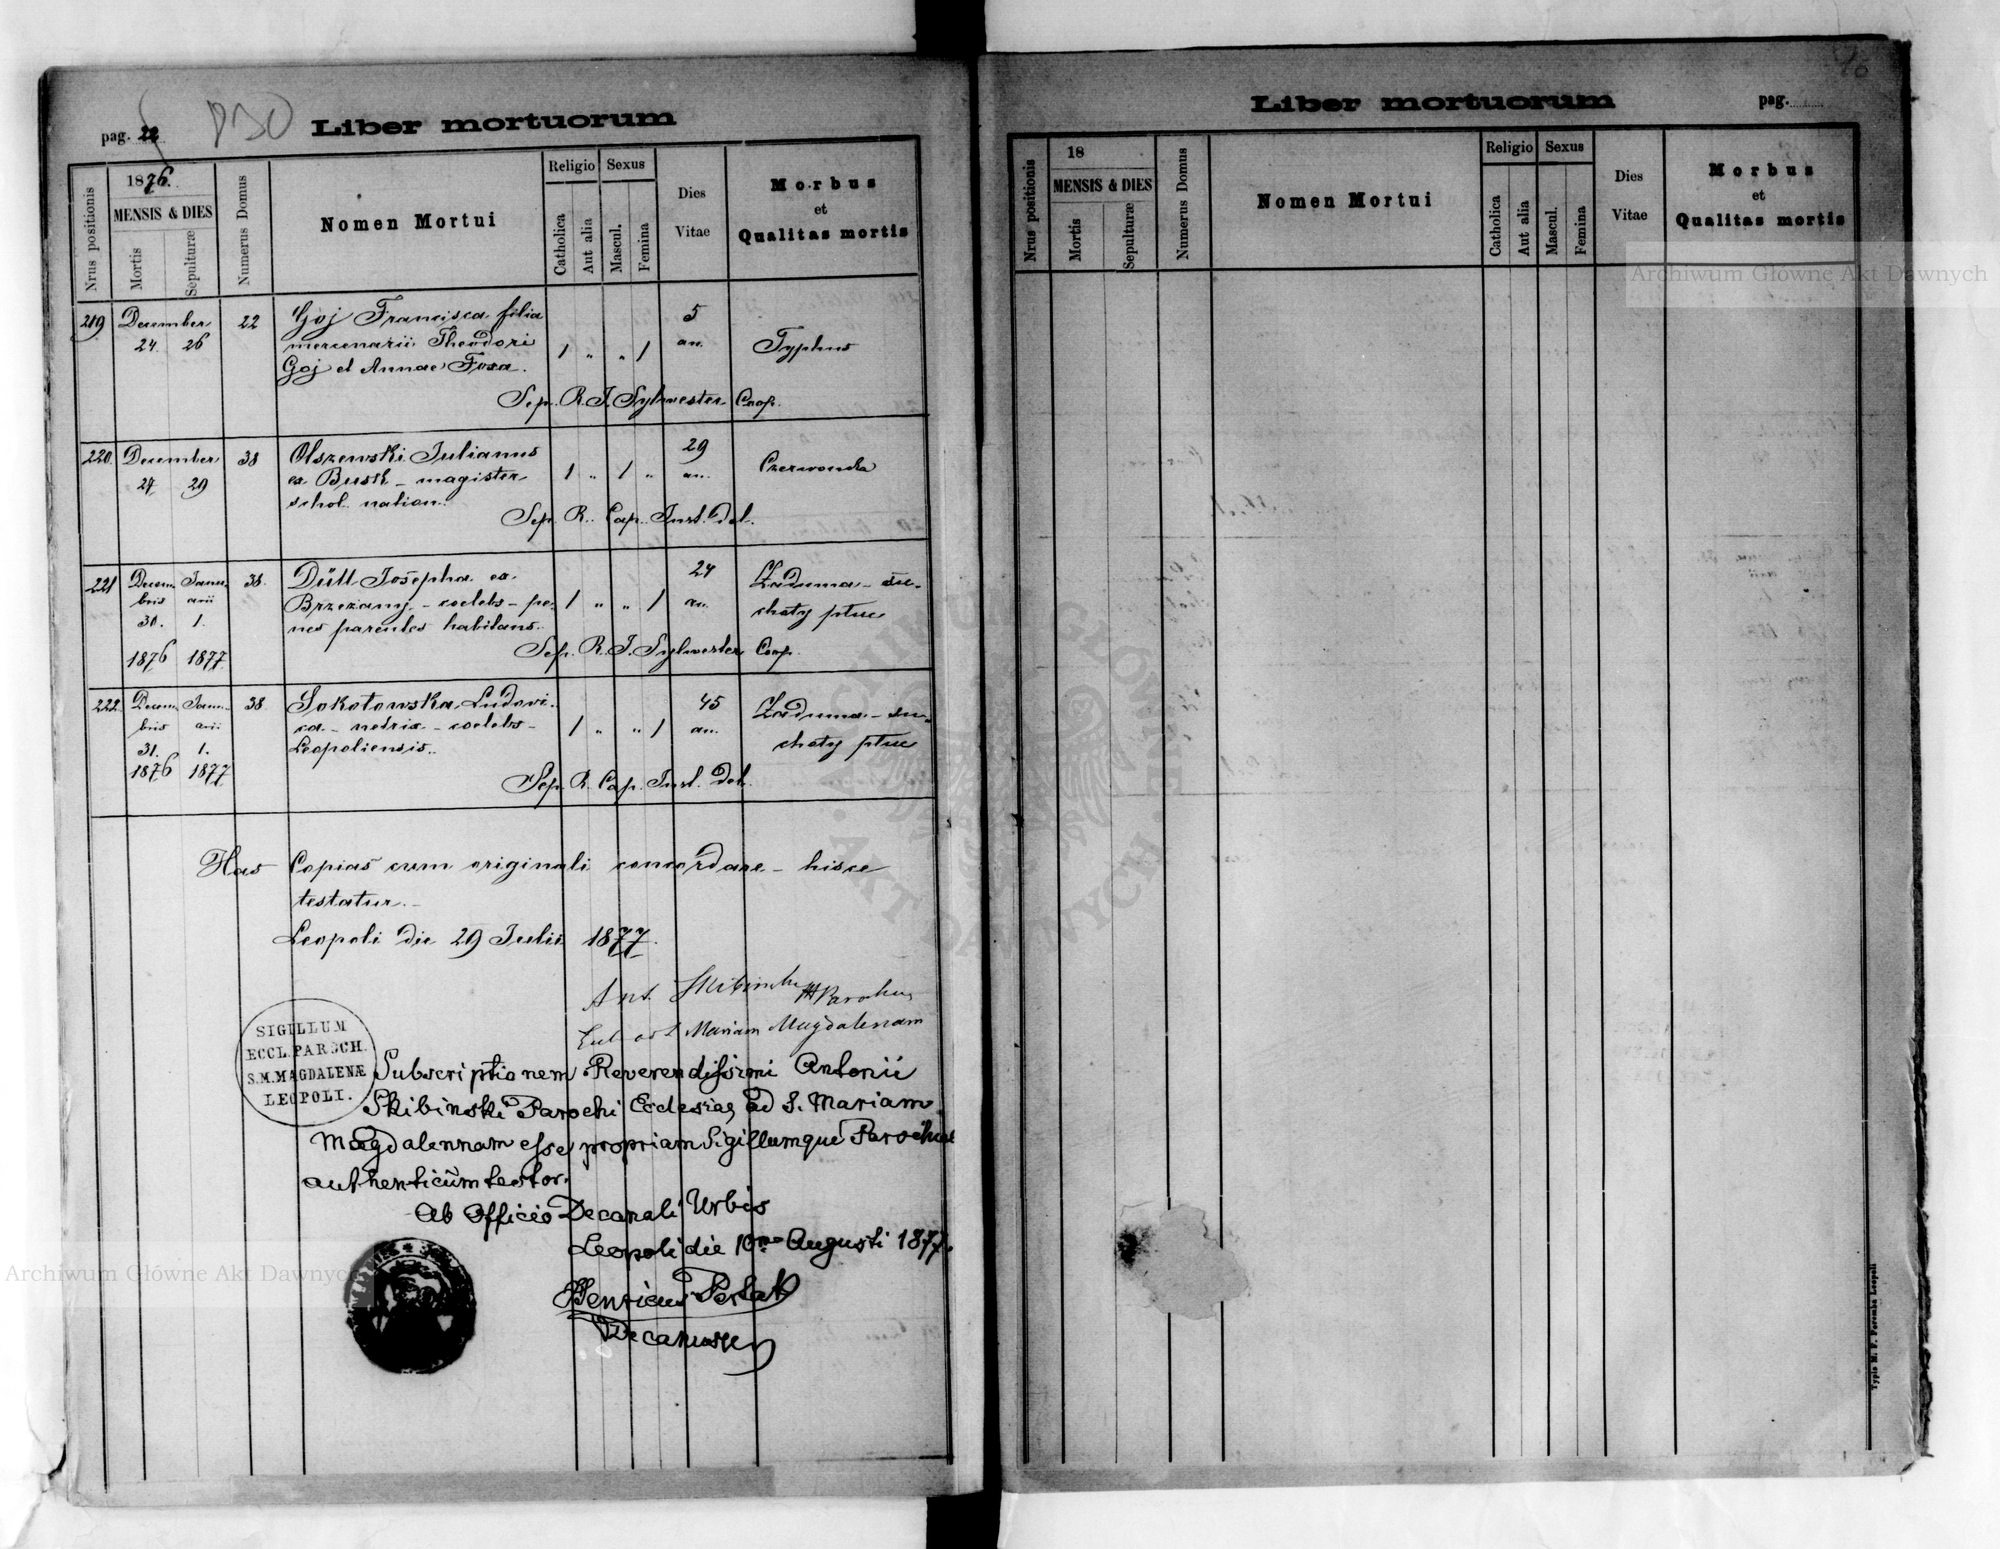 pag. 22
Liber mortuorum
Nrus positionis
1876.
MENSIS & DIES
Mortis
Sepulturæ
Numerus Domus
Nomen Mortui
Religio
Catholica
Aut alia
Sexus
Mascul.
Femina
Dies
Vitae
Morbus
et
Qualitas mortis
219 December 22 Goj Francisca filia 5
24. 26 mercenarii Theodori 1 " " 1 an. Typhus
Goj et Annae Foxa.
Sep. R. J. Sylwester Coop.
220. December 38 Olszewski Julianus 29
27 29 ex Busk – magister 1 " 1 " an. Czerwonka
schol. nation.
Sep. R. Cap. Inst. Del.
221 Decem. Janu- 38. Düll Josepha ex 24 Zaduma – su-
bris arii Brzezany – coelebs – pe- 1 " " 1 an. choty płuc
30. 1. nes parentes habitans.
1876 1877 Sep. R. J. Sylwester Coop.
222. Decem. Janu- 38. Sokołowska Ludovi- 45 Zaduma – su-
bris arii ca – netrix – coelebs – 1 " " 1 an. choty płuc
31. 1. Leopoliensis.
1876 1877 Sep. R. Cap. Inst. Del.
Has Copias cum originali concordare – hisce
testatur.
Leopoli die 29 Julii 1877.
Ant. Skibinski Parochus
Eccl. ad S. Mariam Magdalenam
SIGILLUM
ECCL. PAROCH.
S.M. MAGDALENÆ
LEOPOLI.
Subscriptionem Reverendissimi Antonii
Skibinski Parochi Ecclesiae ad S. Mariam
Magdalennam esse propriam Sigillumque Parochiae
authenticum testor.
Ab Officio Decanali Urbis
Leopoli die 10ma Augusti 1877.
Henricus
Decanus
Liber mortuorum
pag.
Nrus positionis
18
MENSIS & DIES
Mortis
Sepulturæ
Numerus Domus
Nomen Mortui
Religio
Catholica
Aut alia
Sexus
Mascul.
Femina
Dies
Vitae
Morbus
et
Qualitas mortis
Typis M. F. Poremba Leopoli
Archiwum Główne Akt Dawnych
Archiwum Główne Akt Dawnych
ARCHIWUM GŁÓWNE
AKT DAWNYCH